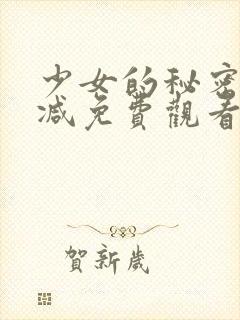 少女的秘密
减免費觀看
賀新歲